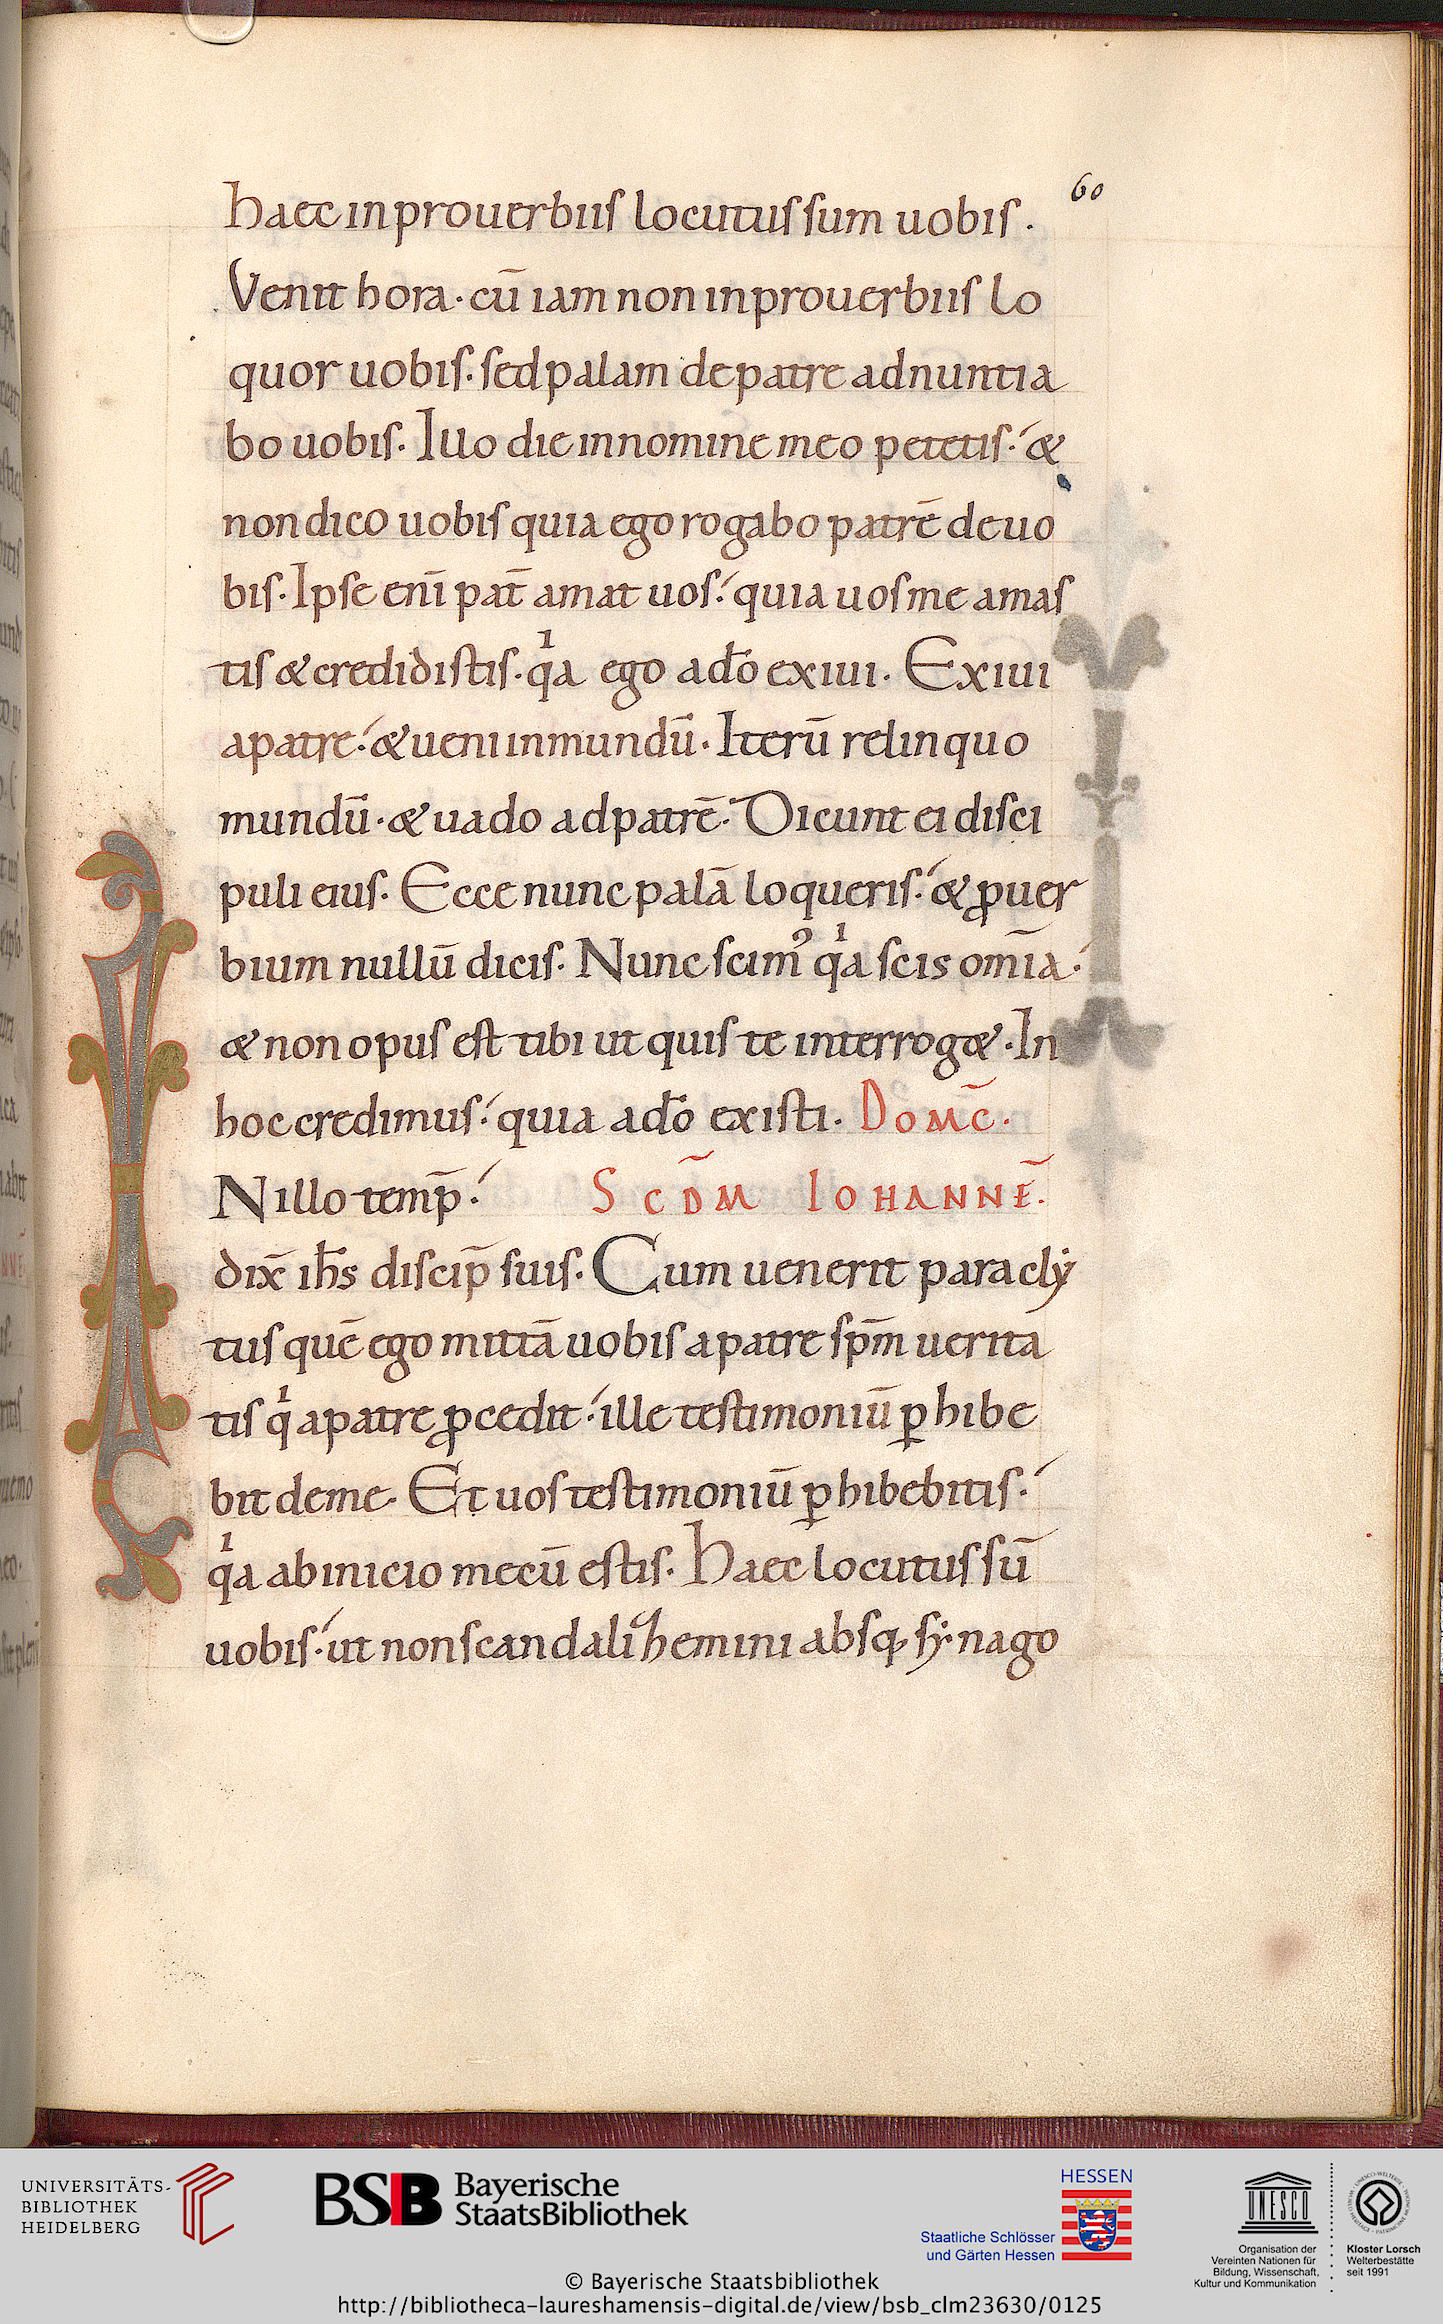 60
haec inprouerbiis locutus sum uobis.
Venit hora. cū iam non inprouerbiis lo
quor uobis. sed palam depatre adnuntia
bo uobis. Illo die innomine meo petetis. &
non dico uobis quia ego rogabo patrē deuo
bis. Ipse enī pat̄ amat uos. quia uos me amas
tis & credidistis. qͥa ego ad͞o exiui. Exiui
apatre. & ueni inmundū. Iterū relinquo
mundū. & uado adpatrē. Dicunt ei disci
puli eius. Ecce nunc palā loqueris. & ꝓuer
bium nullū dicis. Nunc scimꝰ qͥa scis om̄ia.
& non opus est tibi ut quis te interrog&. In
hoc credimus. quia ad͞o existi. Dom̄c.
Nillo temp̄. Scd̄m Iohannē.
dix̄ ih̄s discip̄ suis. Cum uenerit paracly
tus quē ego mittā uobis apatre sp̄m uerita
tis qͥ apatre ꝓcedit. ille testimoniū ꝑhibe
bit deme. Et uos testimoniū ꝑhibebitis.
qͥa abinicio mecū estis. Haec locutus sū
uobis. ut non scandalihemini absq, sẏnago
UNIVERSITÄTS-
BIBLIOTHEK
HEIDELBERG
BSB Bayerische
StaatsBibliothek
HESSEN
Staatliche Schlösser
und Gärten Hessen
UNESCO
Organisation der
Vereinten Nationen für
Bildung, Wissenschaft,
Kultur und Kommunikation
Kloster Lorsch
Welterbestätte
seit 1991
© Bayerische Staatsbibliothek
http://bibliotheca-laureshamensis-digital.de/view/bsb_clm23630/0125